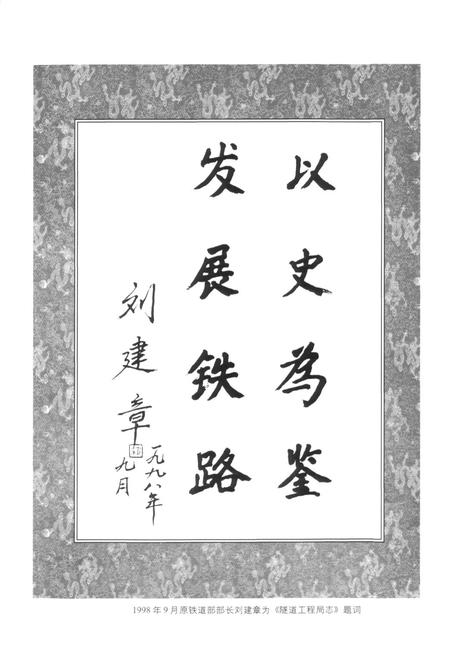 以史为鉴
发展铁路
刘建章
一九九八年
九月
1998年9月原铁道部部长刘建章为《隧道工程局志》题词